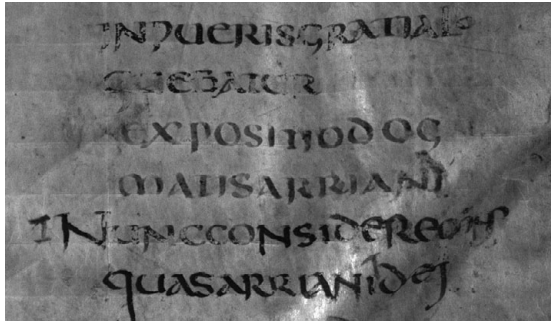 INQUERISGRATIAE
QUEBATUR
EXPOSITIODOG
MATISARRIANI
INUNCCONSIDEREMUS
QUASARRIANIDEI